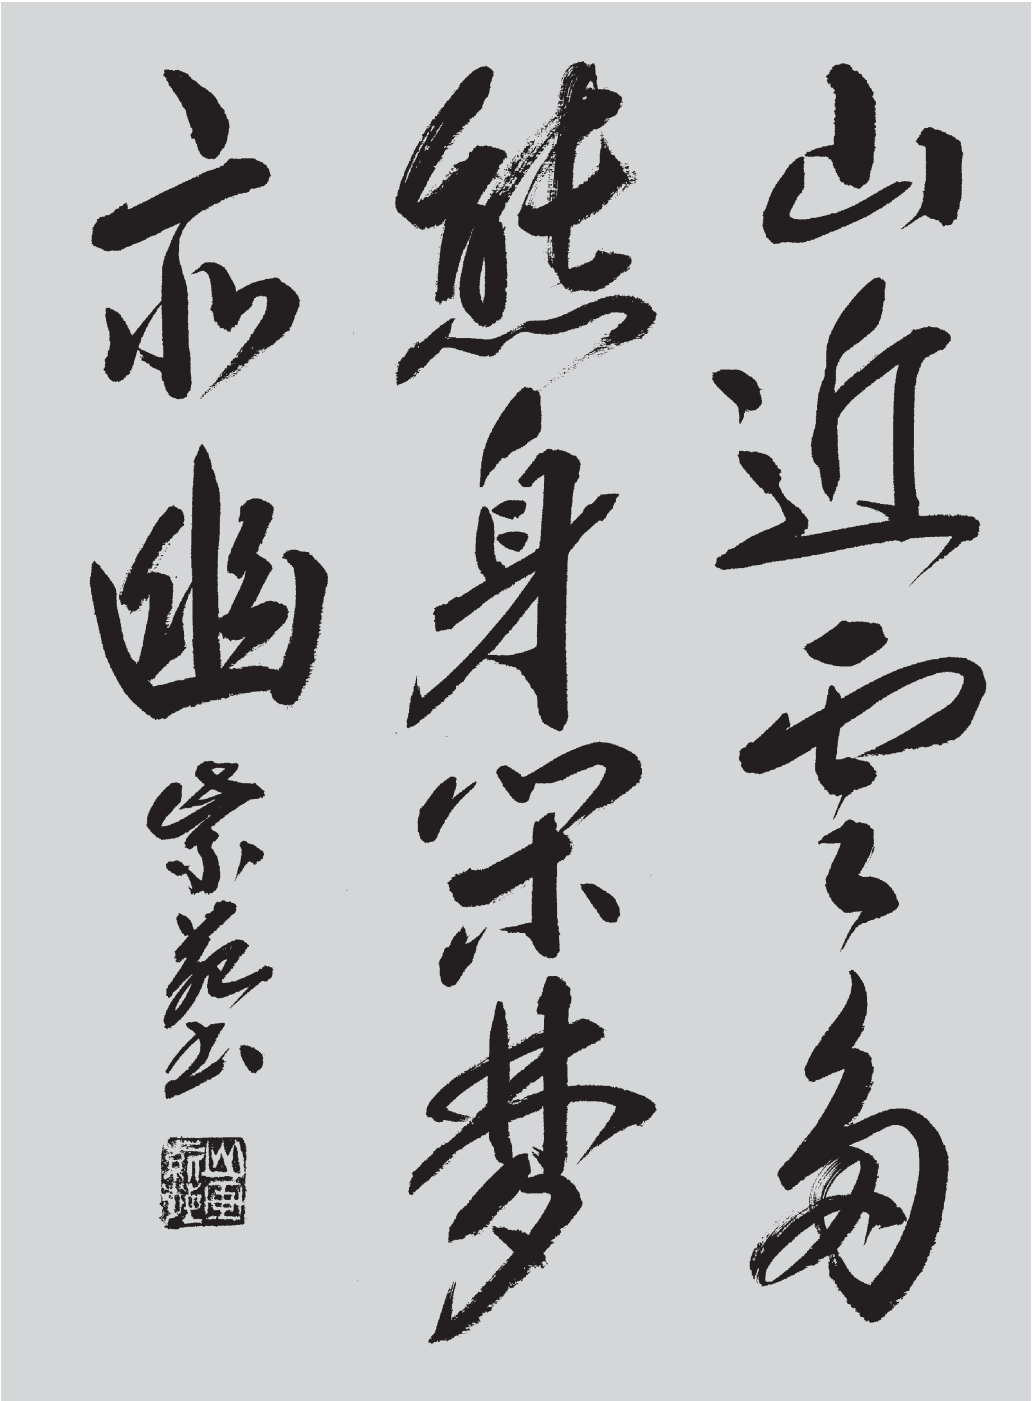 山近雲多
態身閑夢
亦幽 紫苑書